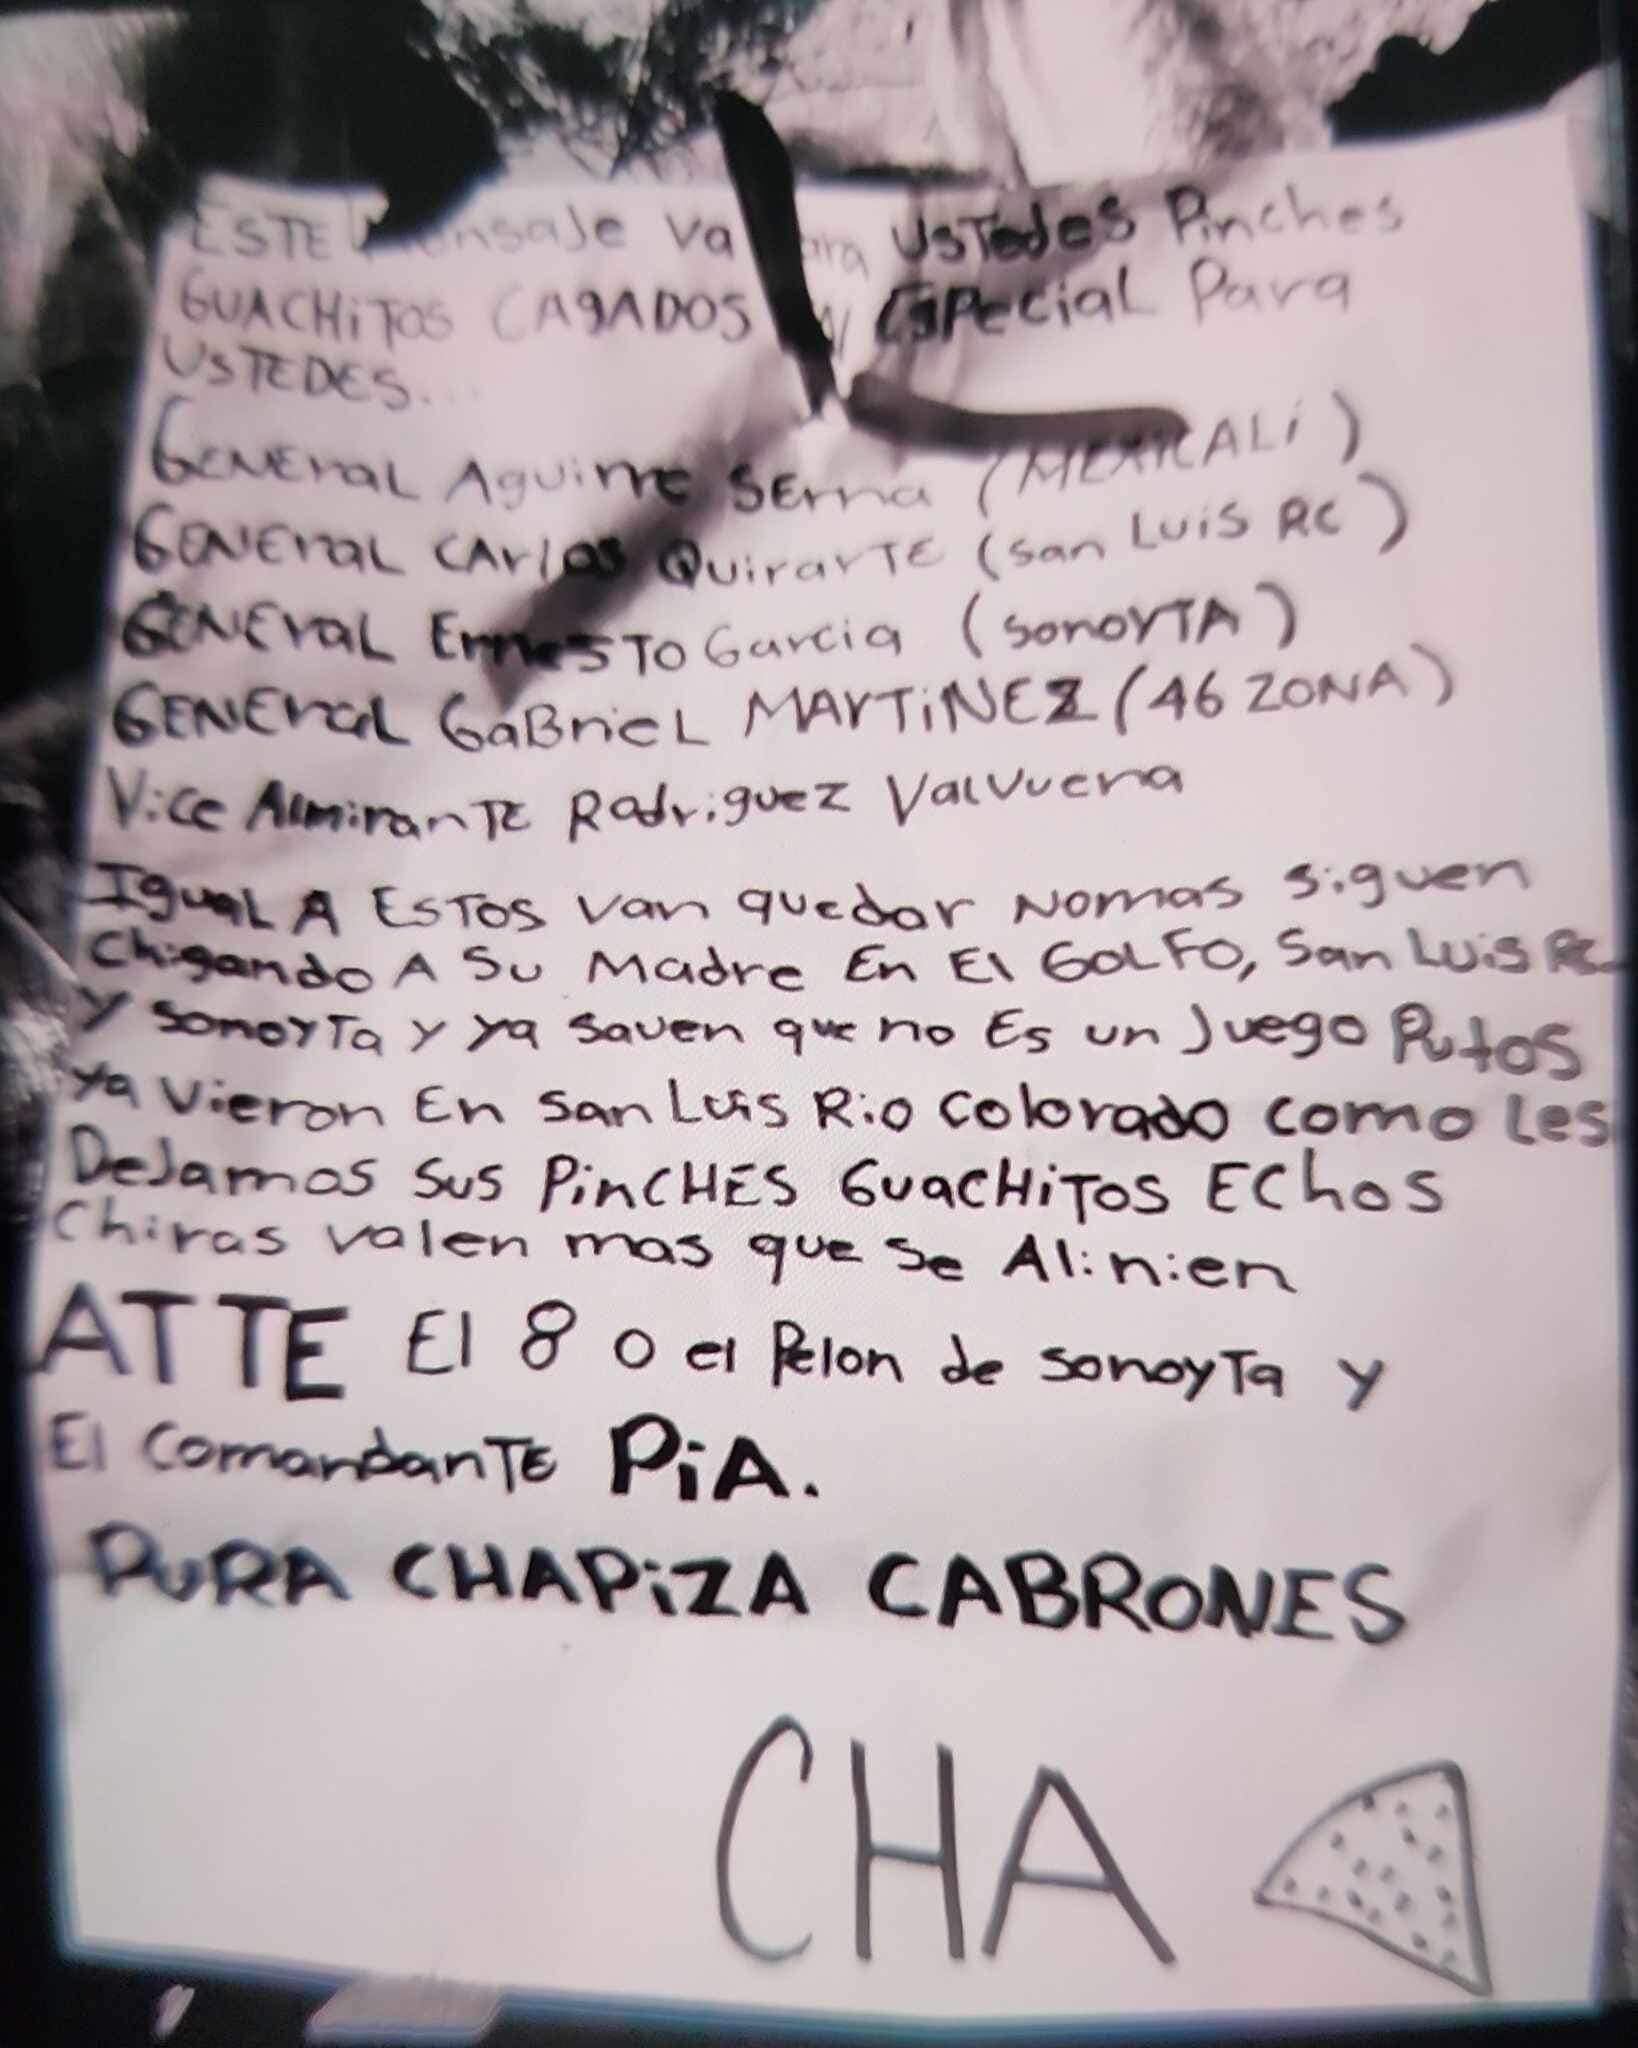 ESTE mensaje va para USTedes Pinches
GUACHiTOS CAGADOS EN ESPECiaL Para
USTEDES...
GENEraL Aguirre SErna (MEXICALi)
GENEraL CArlos QuirarTE (San Luis RC)
GENEraL ErnesTO Garcia (SonoyTA)
GENEraL GaBrieL MARTiNEZ (46 ZONA)
Vice AlmiranTE Rodriguez Valvuena
IguaL A ESTOS van quedar NOMAS siguen
Chigando A Su Madre En El GOLFO, San Luis RC
y SonoyTa y ya saven que no Es un Juego Putos
ya vieron En San Luis Rio Colorado como les
DeJamos sus PinCHES GuaCHiTOS EChos
Chiras valen mas que se Alinien
ATTE El 8 o el Pelon de SonoyTa y
El ComandanTE PiA.
PURA CHAPiZA CABRONES
CHA